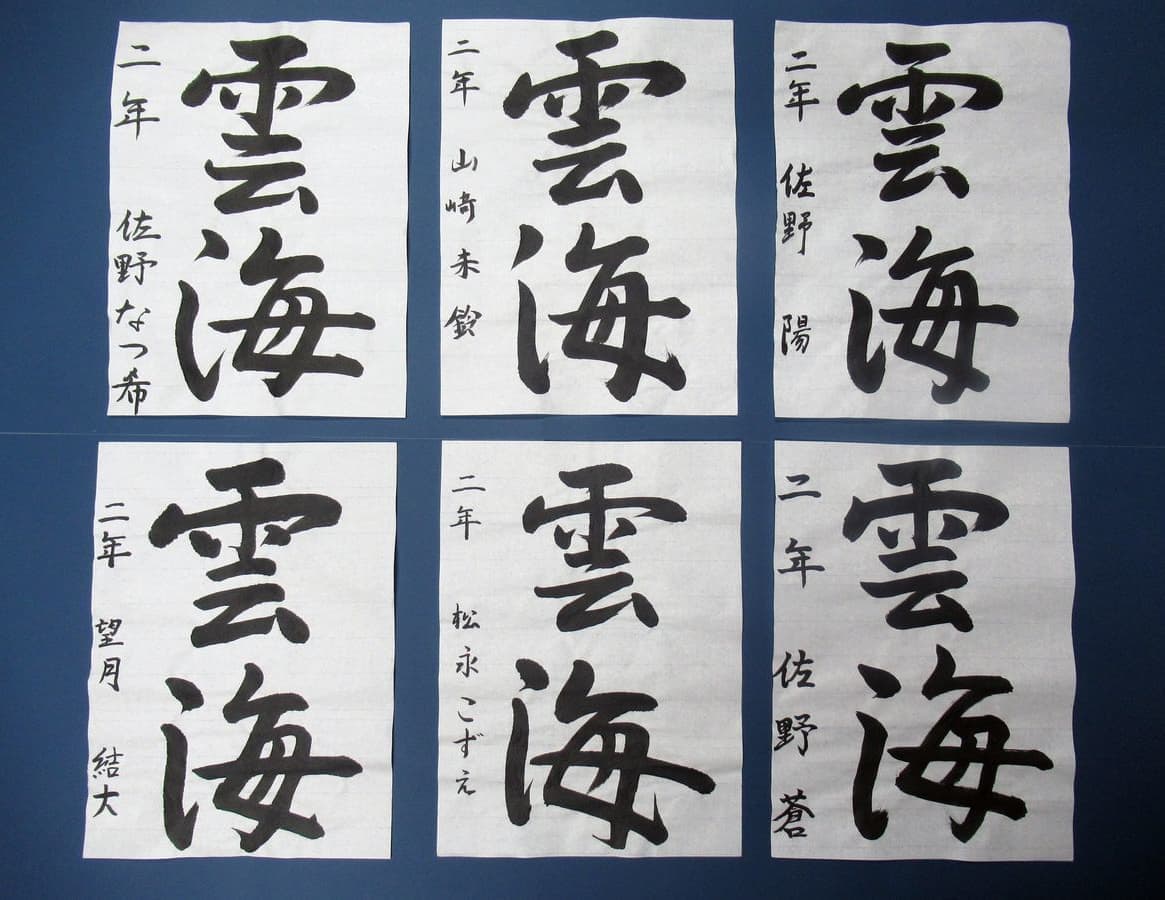 雲海
二年 佐野なつ希
雲海
二年 山崎未鈴
雲海
二年 佐野 陽
雲海
二年 望月 結大
雲海
二年 松永こずえ
雲海
二年 佐野 蒼